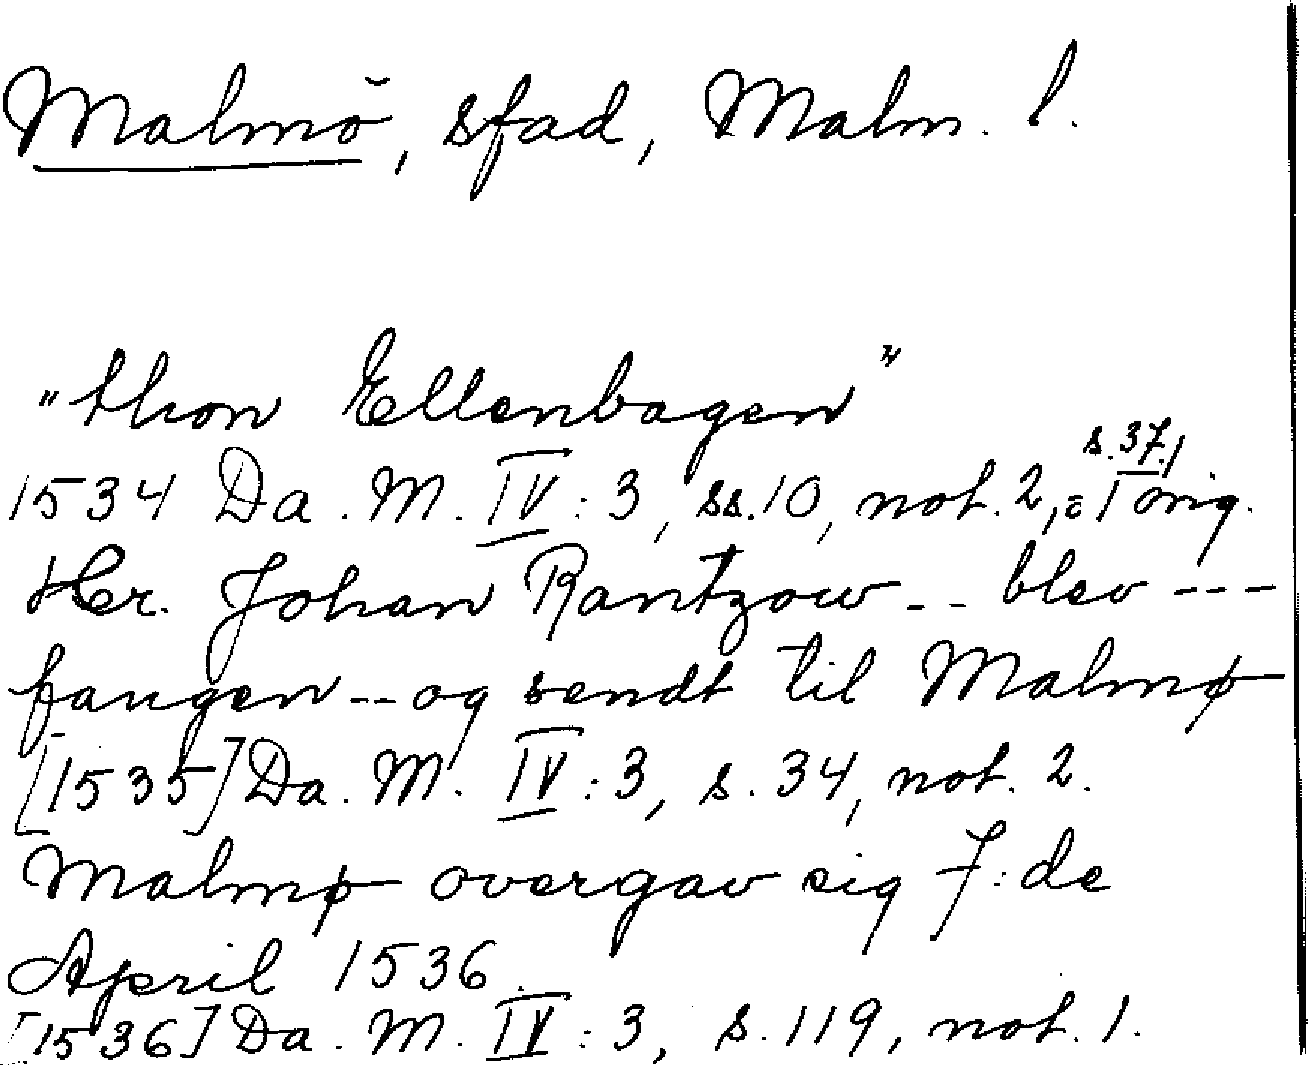 Malmö, stad, Malm. l.
"thon Ellenbogen"
1534 Da. M. IV: 3, ss. 10, not. 2, = s. 37, 1 orig.
Hr. Johan Rantzow -- blev ---
fangen -- og sendt til Malmø
[1535] Da. M. IV: 3, s. 34, not. 2.
Malmø overgav sig 7:de
April 1536.
[1536] Da. M. IV: 3, s. 119, not. 1.